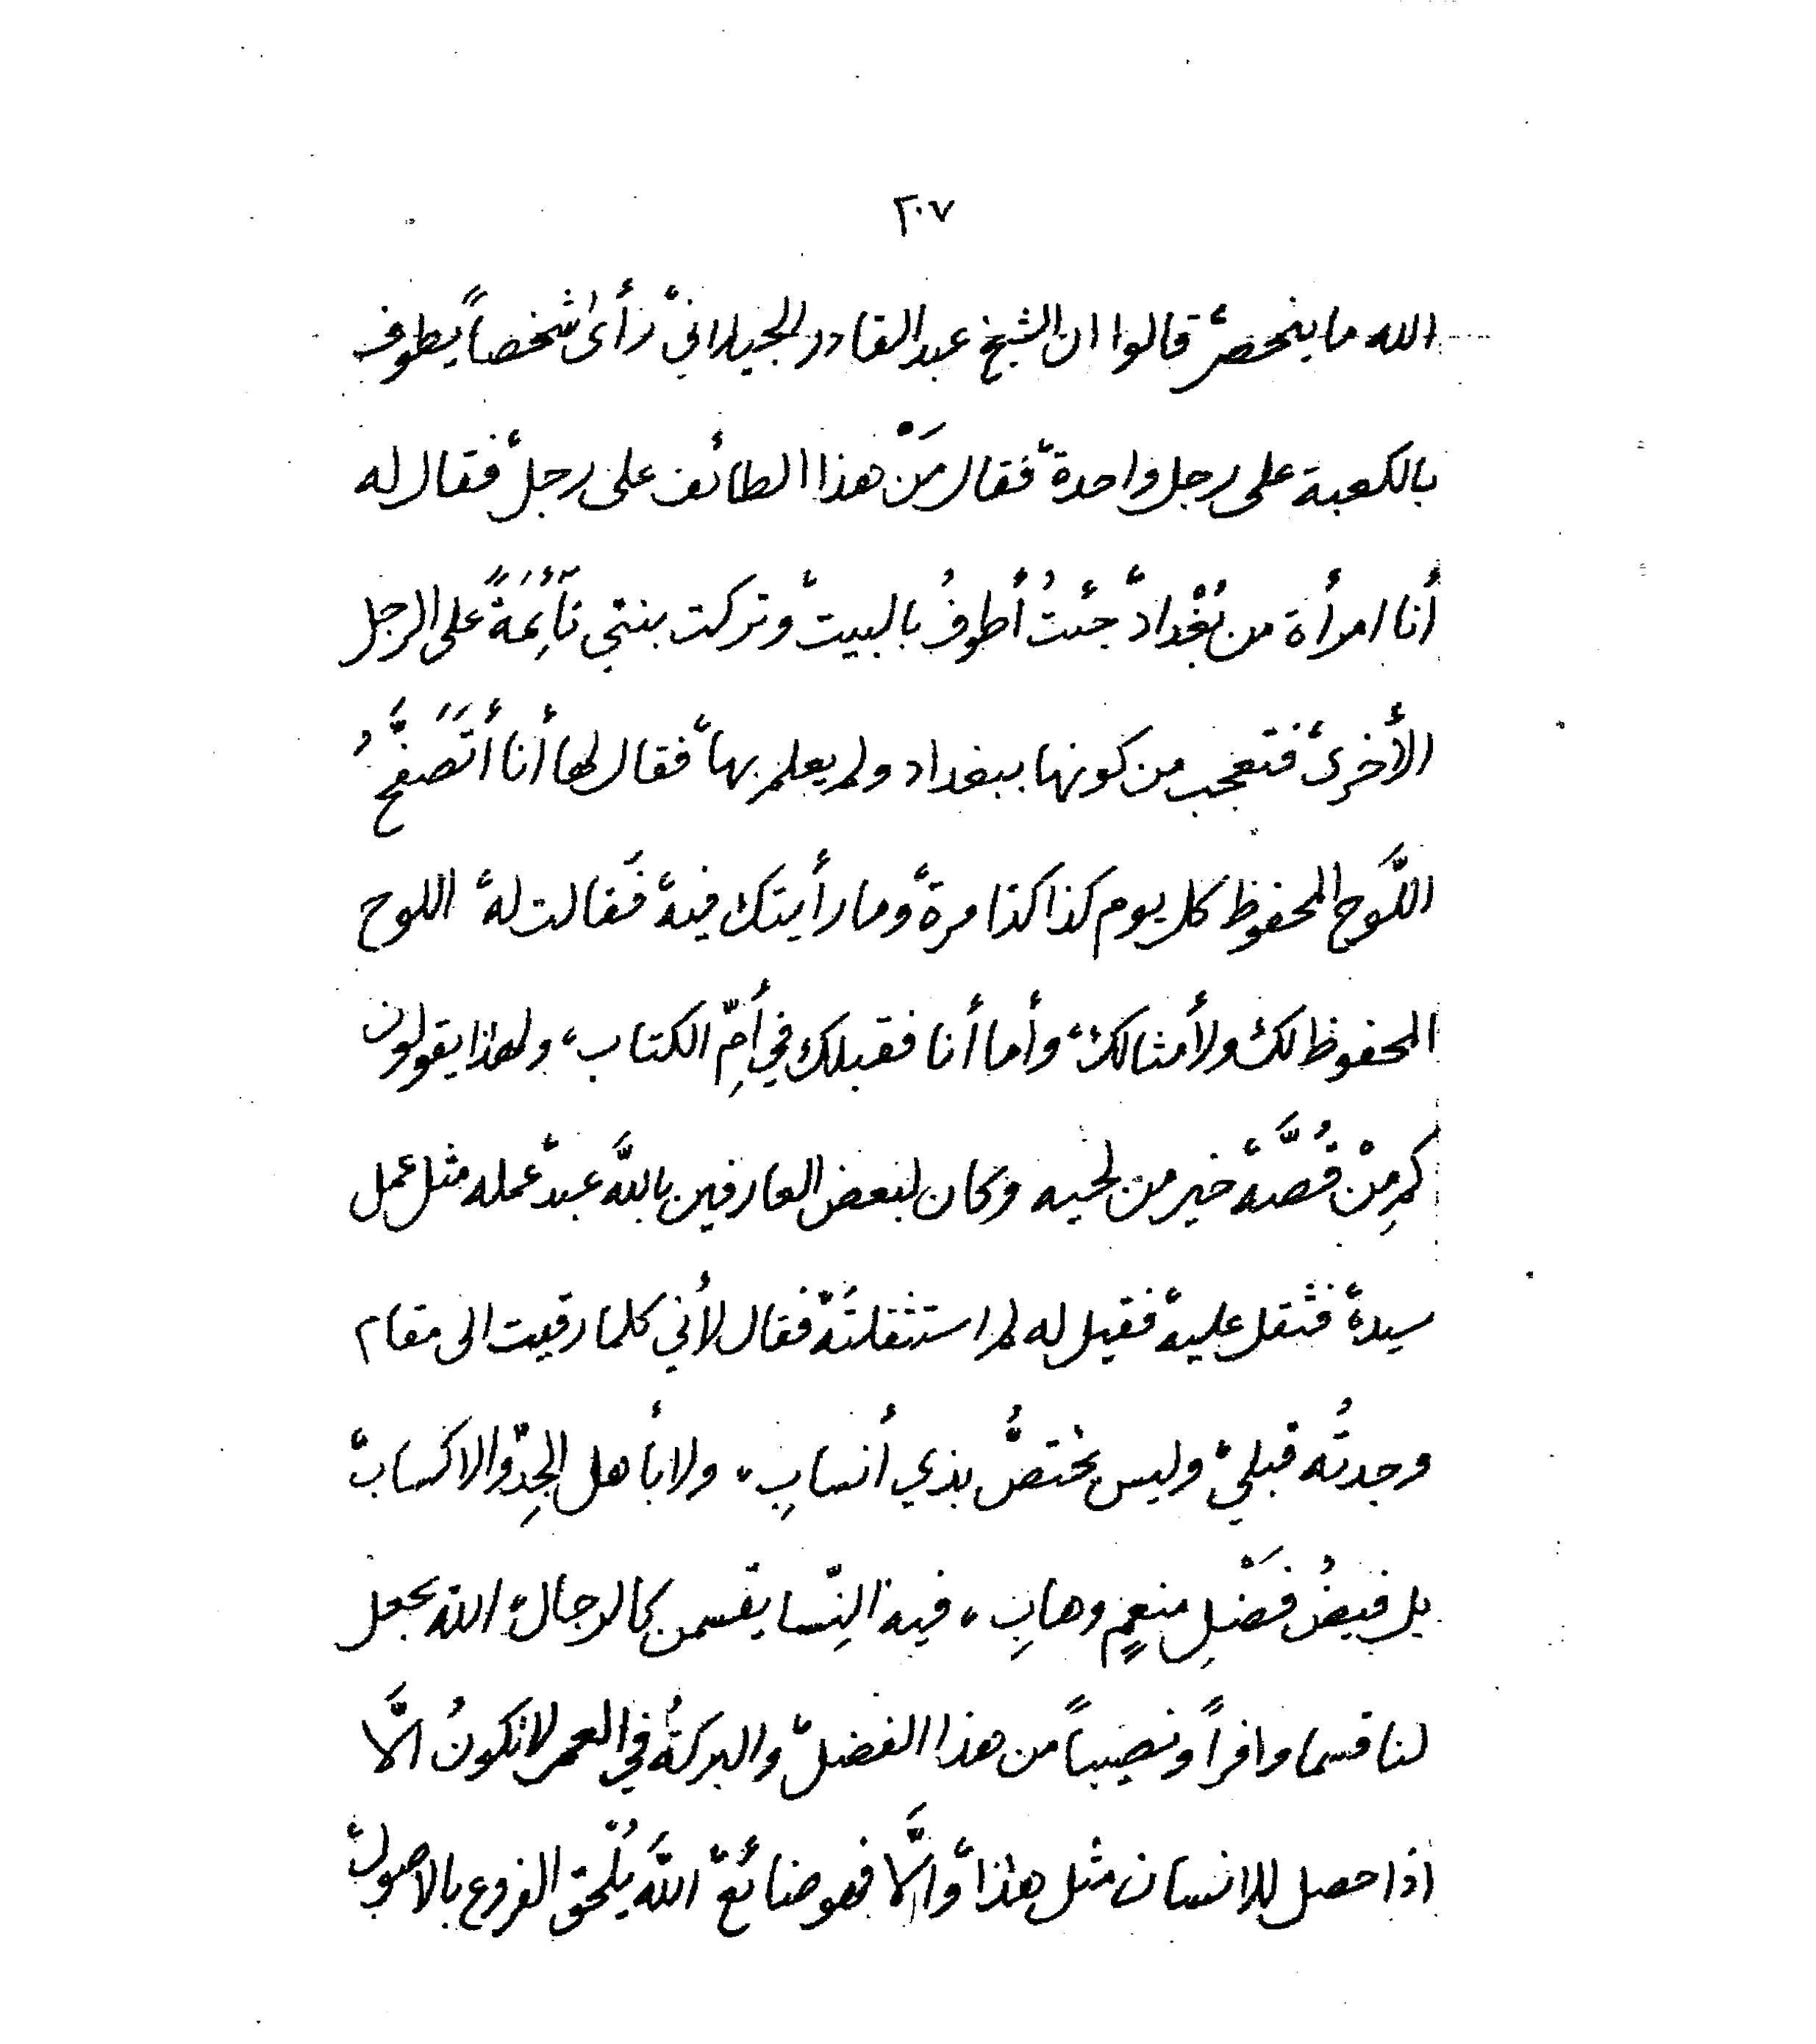 ٢٠٧
الله ما ينحصر، قالوا ان الشيخ عبد القادر الجيلاني، رأى شخصاً يطوف
بالكعبة على رجل واحدة، فقال مَنْ هذا الطائف على رجل، فقال له
أنا امرأة من بُغْداد، جئتُ أطوفُ بالبيت، وتركت بنتي نَآئِمَةً على الرجل
الأخرى، فتعجب من كونها ببغداد ولم يعلم بها، فقال لها أنا أتَصَفَّحُ
اللَّوح المحفوظ كل يوم كذا كذا مرة، وما رأيتك فيه، فقالت له، اللوح
المحفوظ لك ولأمثالك، وأما أنا فقبلك في أُمِّ الكتاب، ولهذا يقولون
كم مِنْ قُصَّهْ، خير من لحيه وكان لبعض العارفين باللَّه عبد، عمله مثل عمل
سيده، فثقل عليه، فقيل له لم استثقلتَه، فقال لأني كلما رقيت الى مقام
وجدتُه قبلي، وليس يختصُّ بذي أنسابِ، ولا بأهل الجِدّ والاكساب،
بل فيضُ فَضْلِ منعمٍ وهابِ، فيه النِّسا يقسمن كالرجال، الله يجعل
لنا قسما وافراً ونصيباً من هذا الفضل، والبركةُ في العمر لا تكونُ الَّا
اذا حصل للانسان مثل هذا، والَّا فهو ضائع، اللَّه يُلْحق الفروع بالاصول،